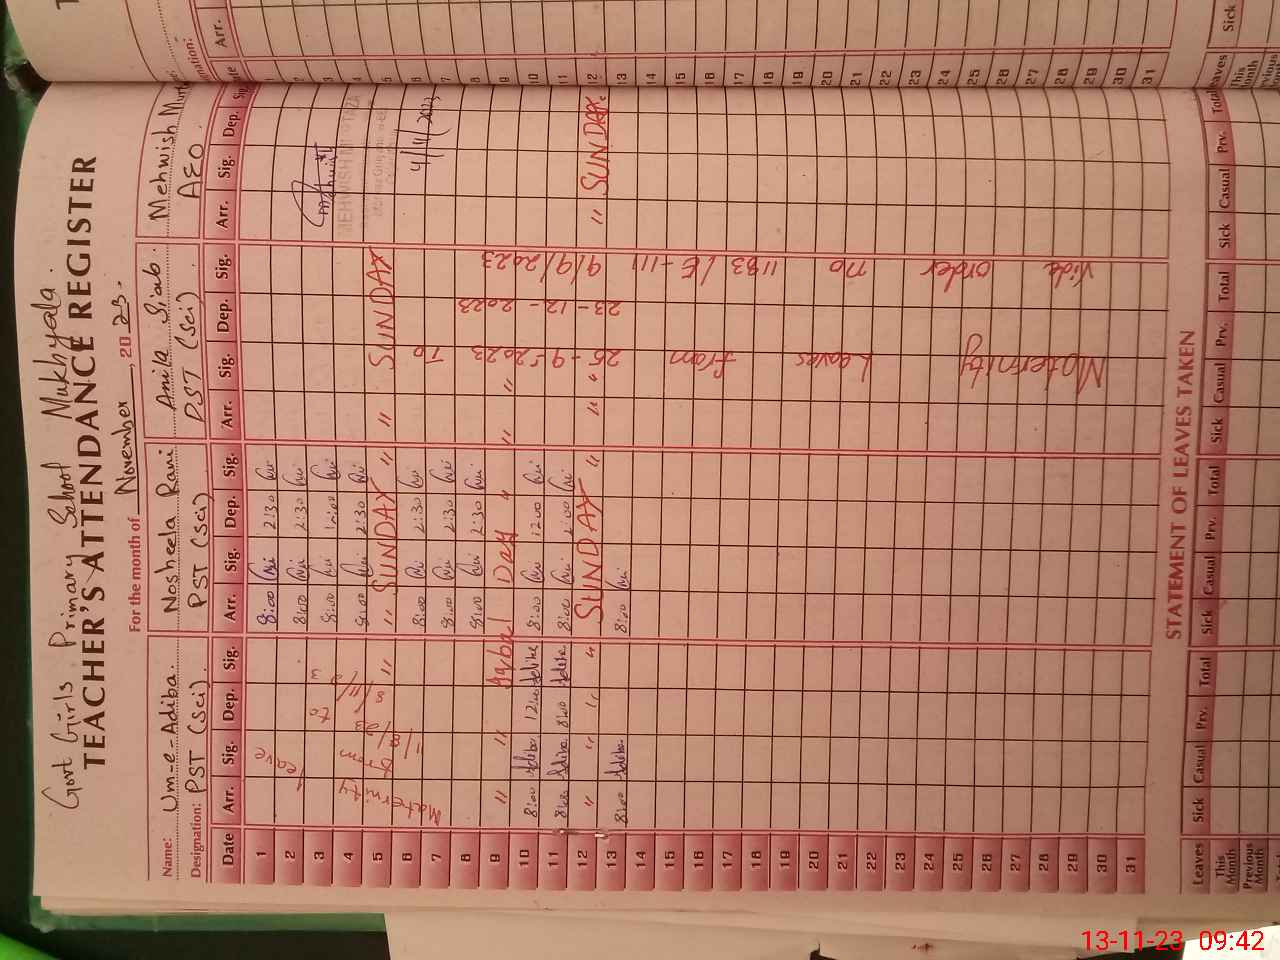 Govt Girls Primary School Mukhyala.
TEACHER'S ATTENDANCE REGISTER
For the month of November, 2023.
Name: Um-e-Adiba. Nosheela Rani Anila Siab. Mehwish
Designation: PST (Sci) PST (Sci) PST (Sci) AEO
Date Arr. Sig. Dep. Sig. Arr. Sig. Dep. Sig. Arr. Sig. Dep. Sig. Arr. Sig. Dep.
1 8:00 2:30
2 8:00 2:30
3 8:00 12:00
4 8:00 2:30
5 " " SUNDAY " " SUNDAY
6 8:00 2:30
7 8:00 2:30
8 8:00 2:30
9 " " Iqbal Day " " "
10 8:00 Adiba 12:00 Adiba 8:00 12:00
11 8:00 Adiba 8:00 Adiba 8:00 2:00
12 " " " " SUNDAY " " " " SUNDAY
13 8:00 Adiba 8:00
14
15
16
17
18
19
20
21
22
23
24
25
26
27
28
29
30
31
Maternity leave
from
to
Maternity Leaves from 25-9-2023 To
23-12-2023
Vide order no 1183/E-III 9/9/2023
MEHWISH MURTAZA
4/11/2023
STATEMENT OF LEAVES TAKEN
Leaves Sick Casual Prv. Total Sick Casual Prv. Total Sick Casual Prv. Total Sick Casual Prv. Total
This Month
Previous Month
Arr.
Date
1
2
3
4
5
6
7
8
9
10
11
12
13
14
15
16
17
18
19
20
21
22
23
24
25
26
27
28
29
30
31
Leaves Sick
This Month
13-11-23 09:42